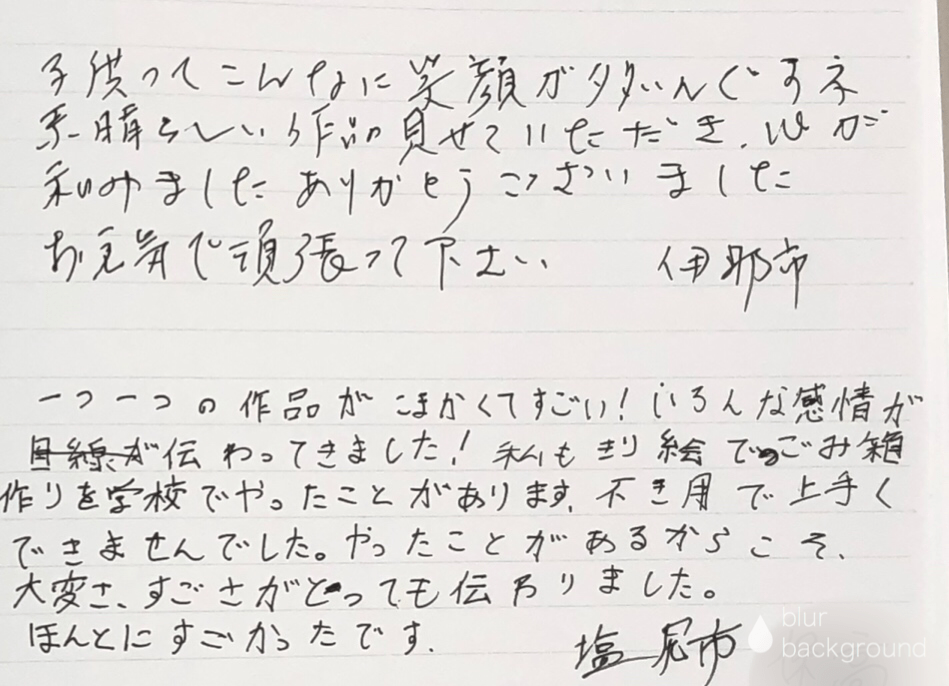 子供ってこんなに笑顔が多いんですネ
素晴らしい作品見せていただき、心が
和みましたありがとうございました
お元気で頑張って下さい 伊那市
一つ一つの作品がこまかくてすごい！いろんな感情が
目線が伝わってきました！私もきり絵でごみ箱
作りを学校でやったことがあります。不き用で上手く
できませんでした。やったことがあるからこそ、
大変さ、すごさがとっても伝わりました。
ほんとにすごかったです。 塩尻市
blur
background